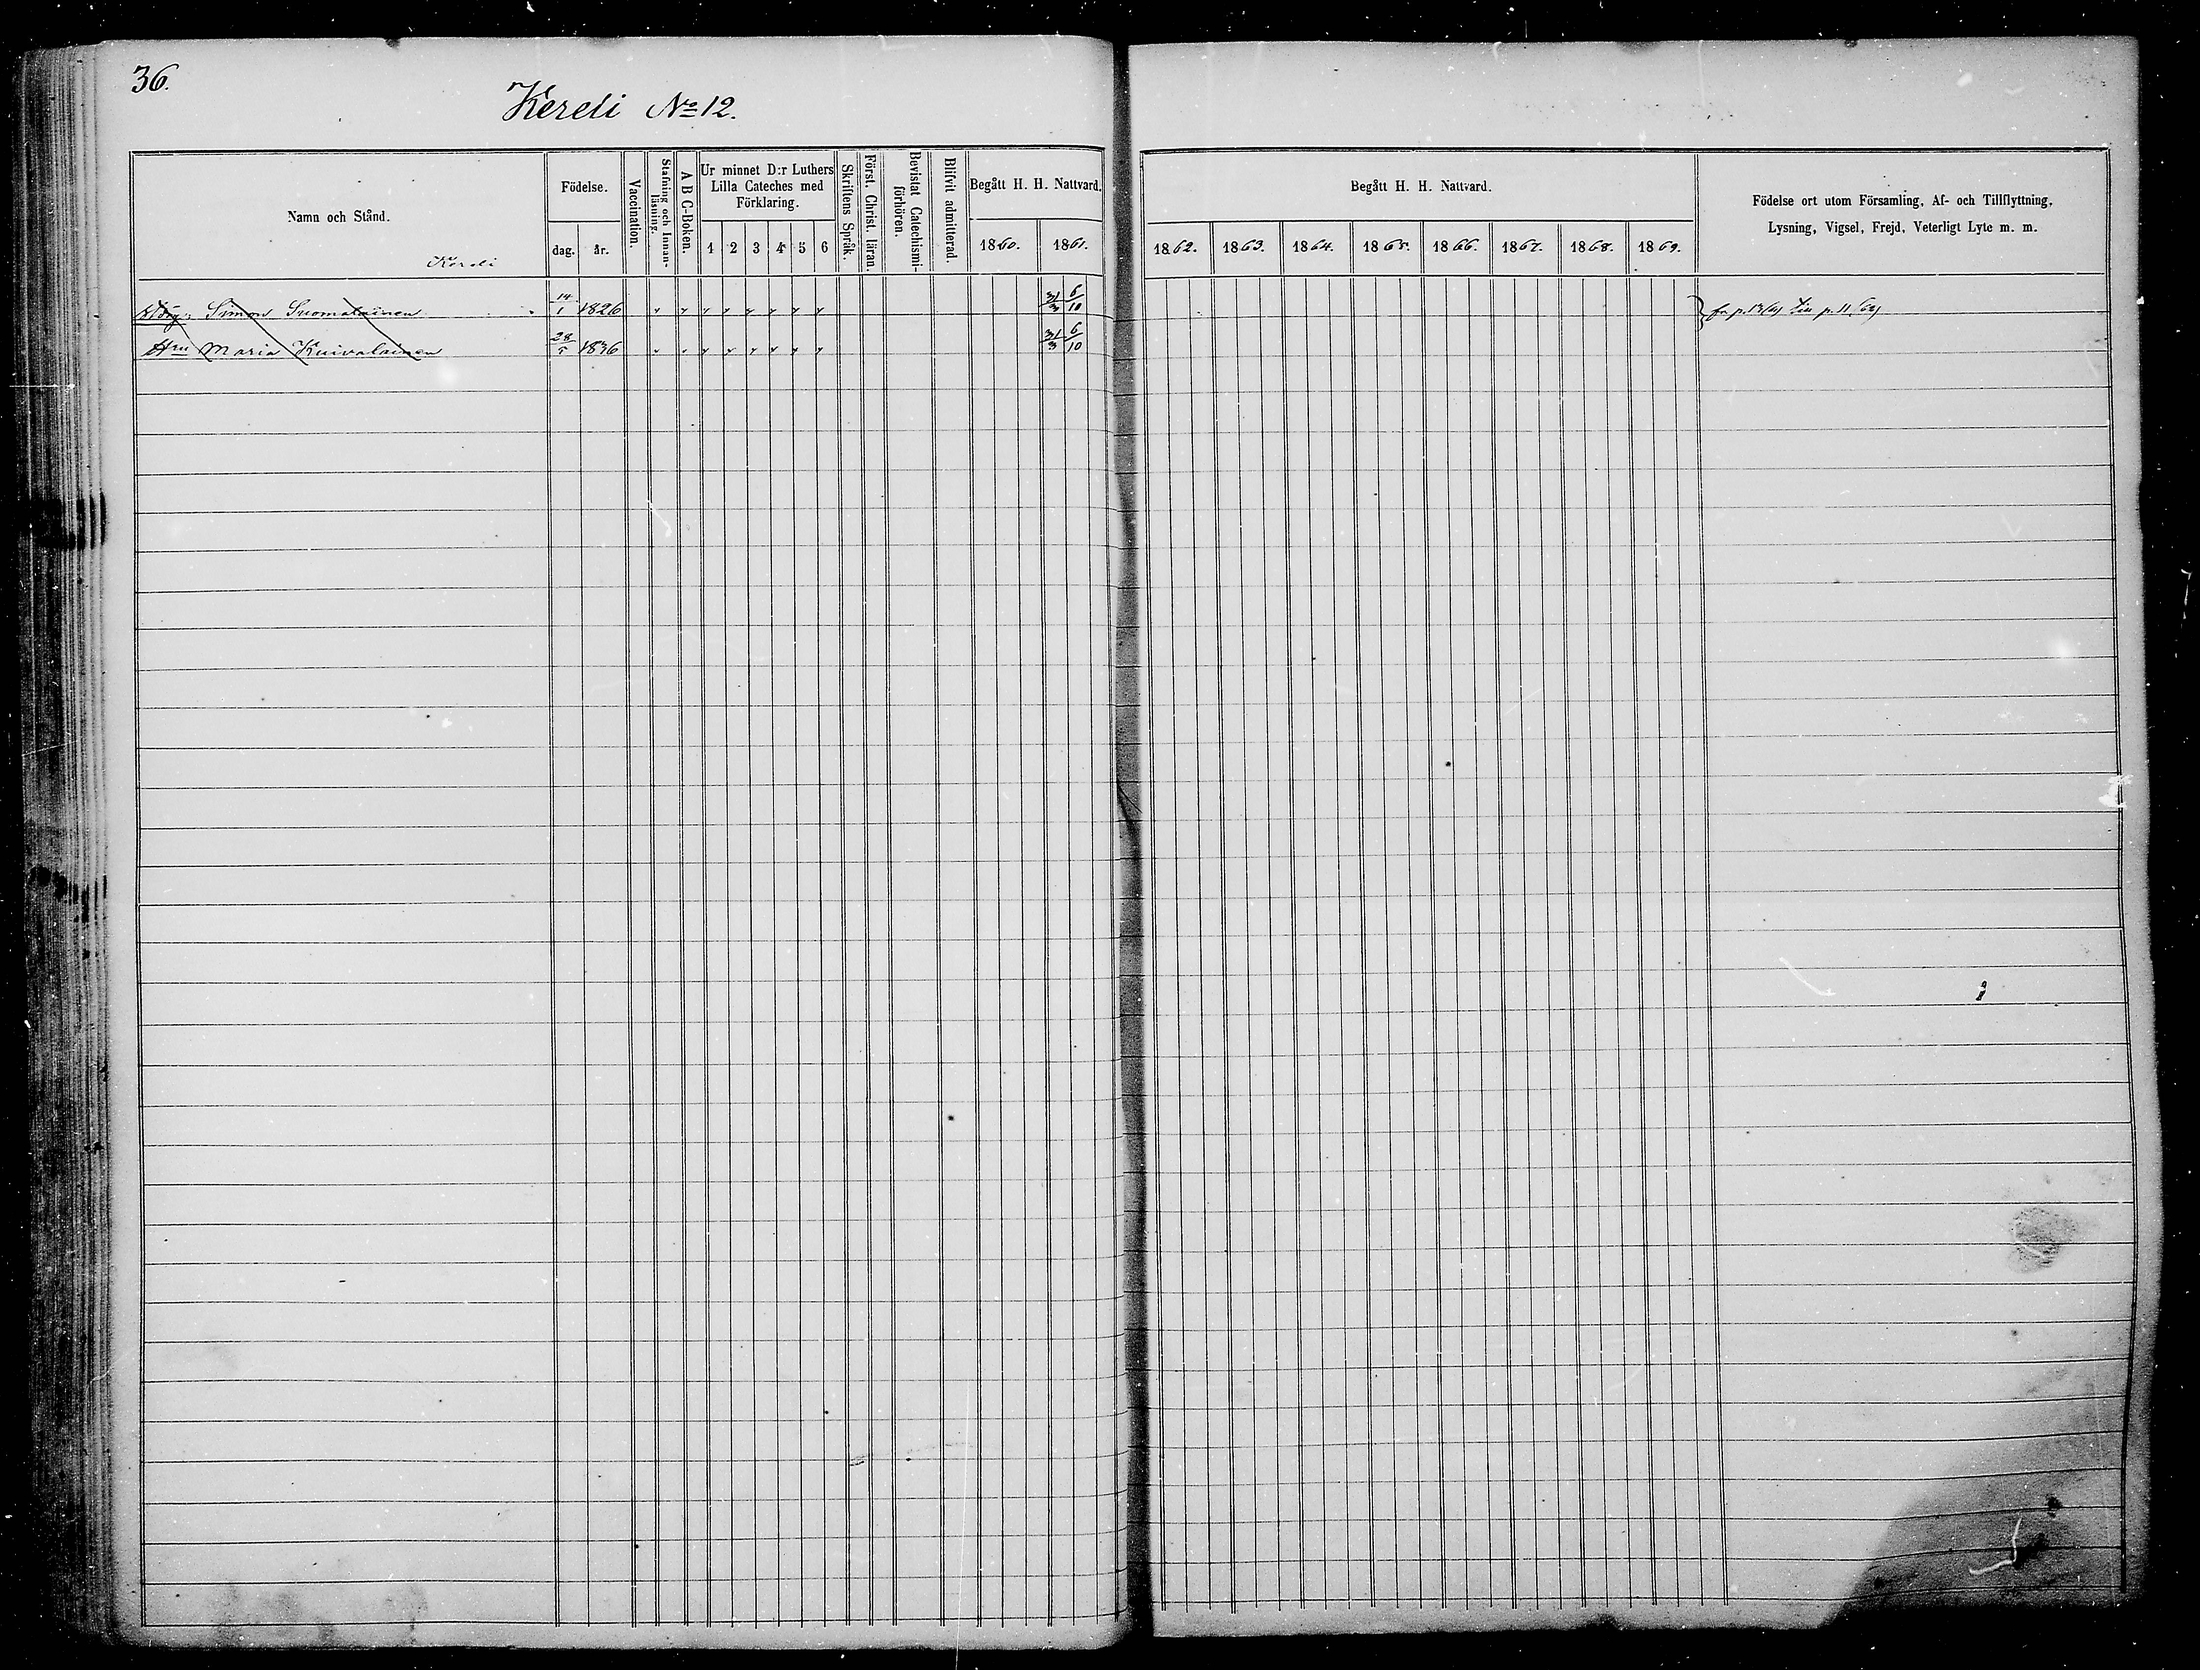 36.
Kereli No 12.
Namn och Stånd.
Kereli
Födelse.
dag.
år.
Vaccination.
Stafning och Innan-
läsning.
A B C-Boken.
Ur minnet D:r Luthers
Lilla Cateches med
Förklaring.
1 2 3 4 5 6
Skriftens Språk.
Först. Christ. läran.
Bevistat Catechismi-
förhören.
Blifvit admitterad.
Begått H. H. Nattvard.
1860. 1861.
Begått H. H. Nattvard.
1862. 1863. 1864. 1865. 1866. 1867. 1868. 1869.
Födelse ort utom Församling, Af- och Tillflyttning,
Lysning, Vigsel, Frejd, Veterligt Lyte m. m.
Simon Suomalainen 14/1 1826 31/3 6/10
Hru Maria Kuivalainen 28/5 1836 31/3 6/10